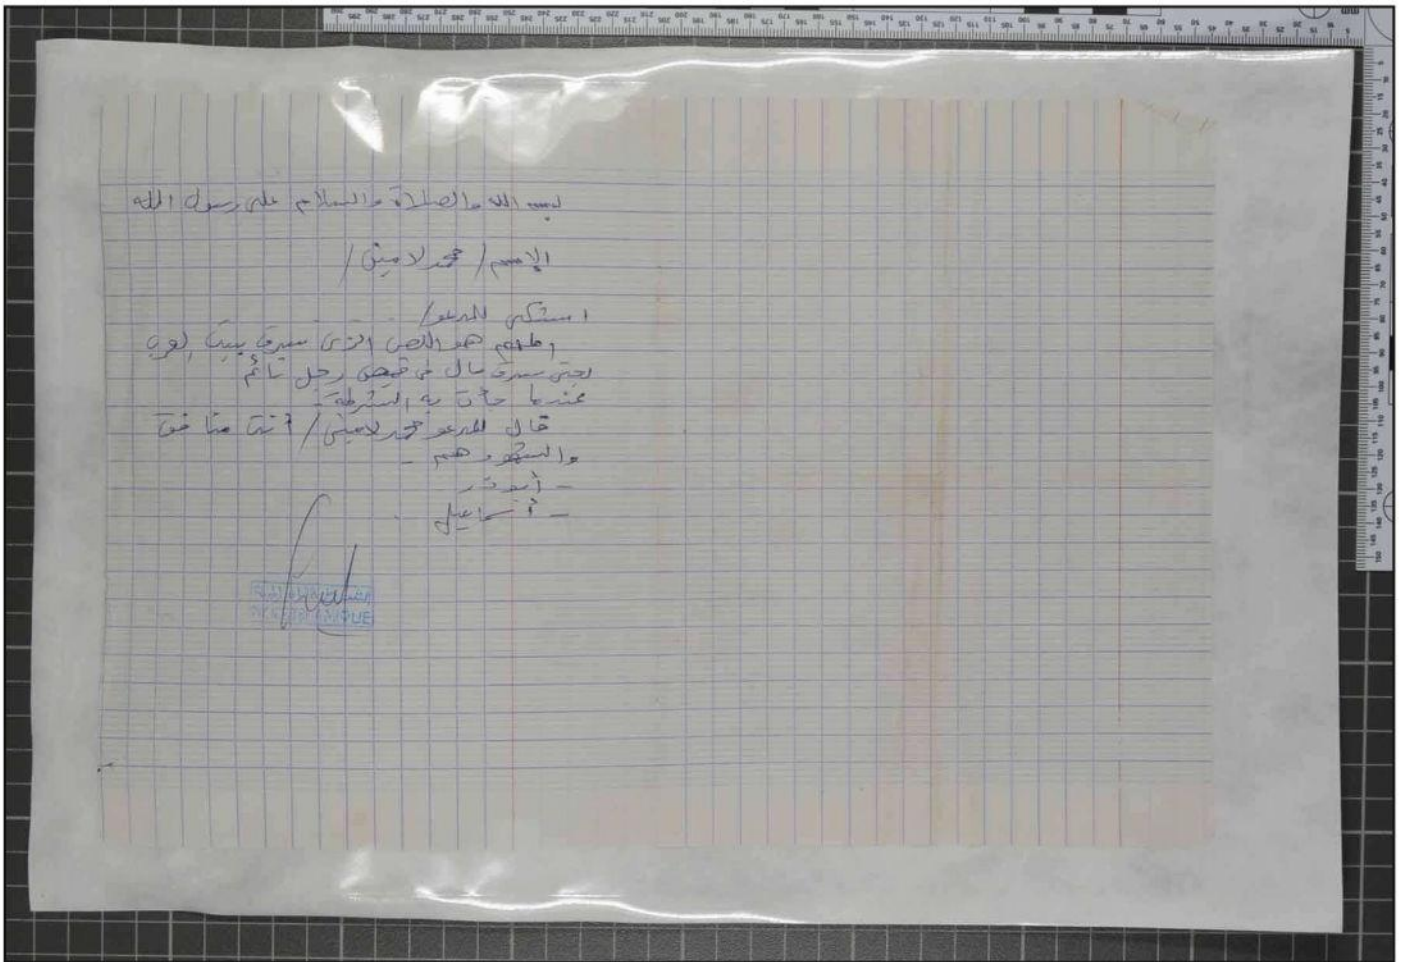 بسم الله والصلاة والسلام على رسول الله
الإسم / محمد لامين /
اشتكى للمدعو /
هو اللص الذى سرق بيت
سرق مال فى قميص رجل نائم
عندما جأت به الشرطة -
قال للمدعو محمد لامين / أنت منافق
والشهود هم -
- أبوذر
- أسماعيل
POLICE ISLAMIQUE
mm